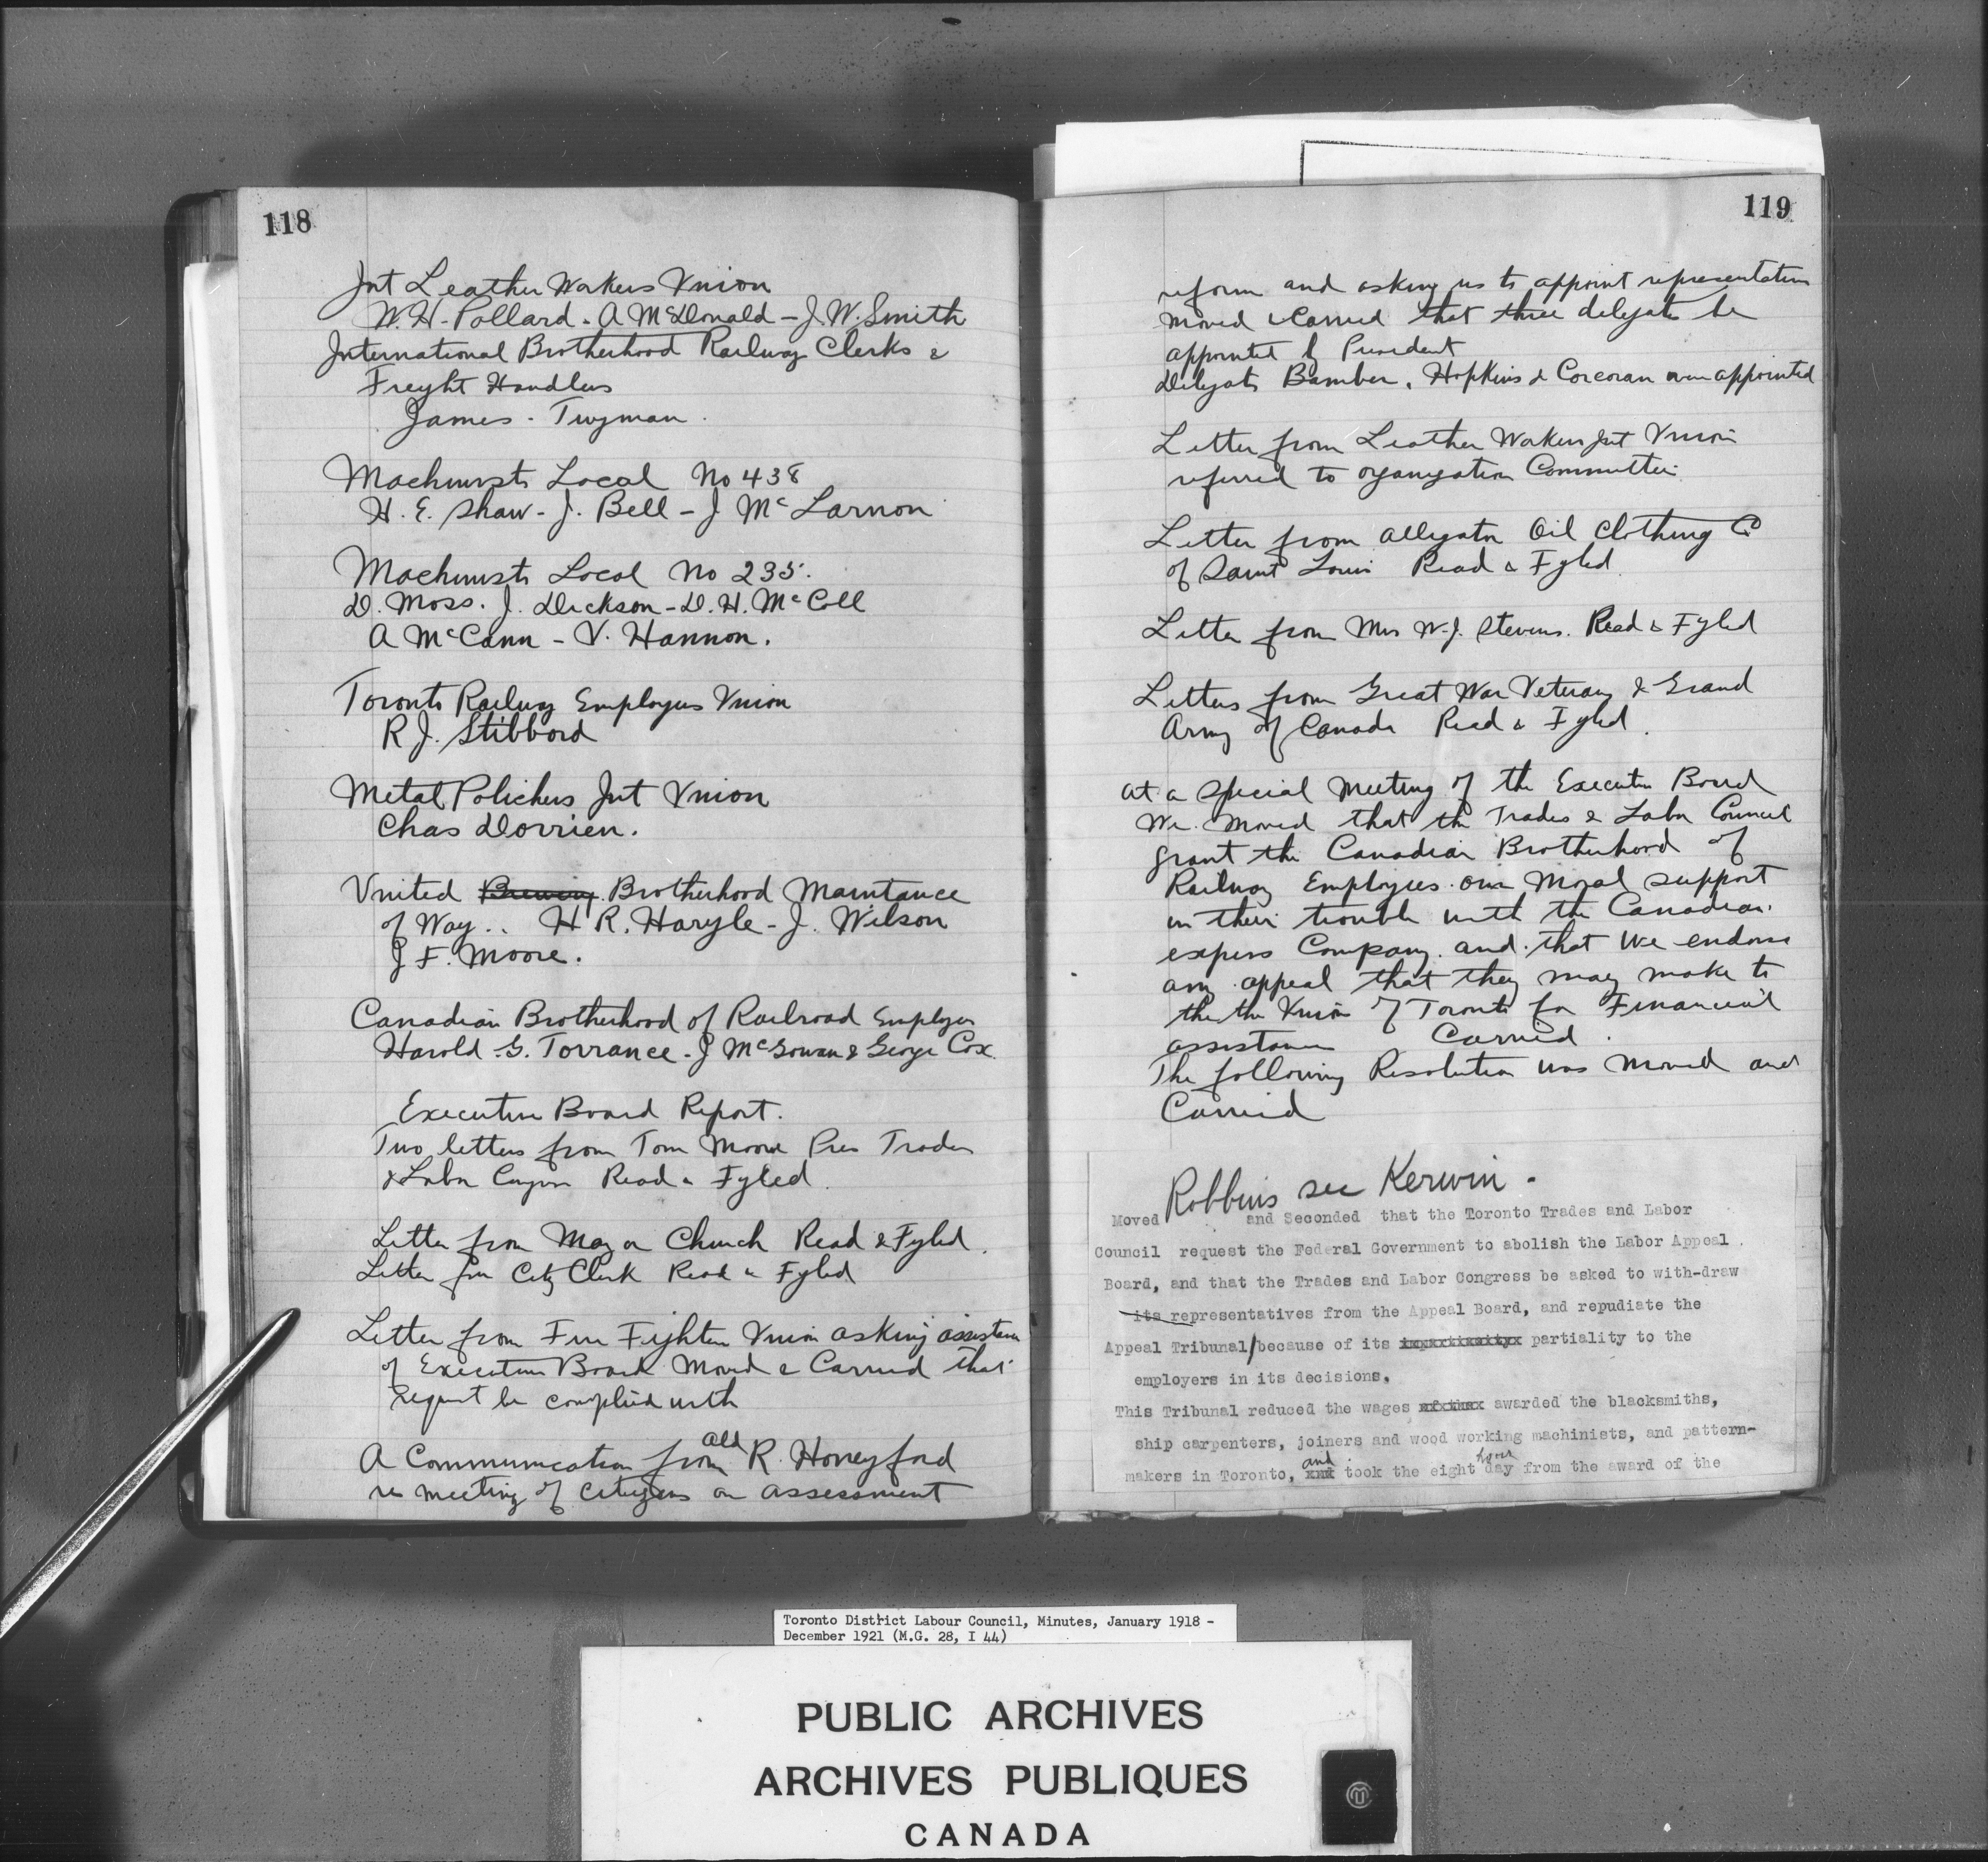 118
Int Leather Workers Union
W. H. Pollard - A McDonald - J. W. Smith
International Brotherhood Railway Clerks &
Freyht Handlers
James - Twyman.
Machinists Local No 438
H. E. Shaw - J. Bell - J McLarnon
Machinists Local No 235.
D. Moss. J. Dickson - D. H. McColl
A McCann - V. Hannon.
Toronto Railway Employees Union
R J. Stibbord
Metal Polichers Int Union
Chas Dorrien.
United Brewing Brotherhood Maintance
of Way.. H R. Haryle - J. Wilson
J F. Moore.
Canadian Brotherhood of Railroad Employes
Harold G. Torrance - J McGowan & George Cox.
Executive Board Report.
Two letters from Tom Moore Pres Trades
& Labor Read & Fyled.
Letter from Mayor Church Read & Fyled.
Letter from City Clerk Read & Fyled
Letter from Fire Fighters Union asking assistance
of Executive Board Moved & Carried that
request be complied with
A Communication from Ald R. Honeyford
re meeting of citizens on assessment
119
reform and asking us to appoint representatives
moved & Carried that three delegates be
appointed by President
Delegats Bamber, Hopkins & Corcoran were appointed
Letter from Leather Workers Int Union
referred to organization Committee.
Letter from Alligator Oil Clothing Co
of Saint Louis Read & Fyled
Letter from Mrs W. J. Stevens. Read & Fyled
Letters from Great War Veterans & Grand
Army of Canada Read & Fyled.
At a Special Meeting of the Executive Board
We moved that the Trades & Labor Council
grant the Canadian Brotherhood of
Railway Employees our Moral support
in their trouble with the Canadian
express Company. and that we endorse
any appeal that they may make to
the the Union of Toronto for Financial
assistance Carried.
The following Resolution was moved and
Carried
Robbins sec Kerwin.
Moved and Seconded that the Toronto Trades and Labor
Council request the Federal Government to abolish the Labor Appeal
Board, and that the Trades and Labor Congress be asked to with-draw
its representatives from the Appeal Board, and repudiate the
Appeal Tribunal/because of its partiality to the
employers in its decisions.
This Tribunal reduced the wages awarded the blacksmiths,
ship carpenters, joiners and wood working machinists, and pattern-
makers in Toronto, and took the eight hour day from the award of the
Toronto District Labour Council, Minutes, January 1918 -
December 1921 (M.G. 28, I 44)
PUBLIC ARCHIVES
ARCHIVES PUBLIQUES
CANADA